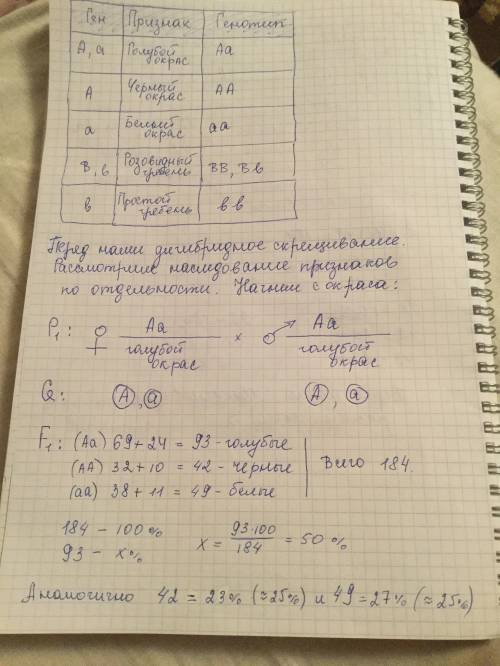 Ген Признак Генотип
А, а Голубой окрас Аа
А Черный окрас АА
а Белый окрас аа
В, в Розовидный гребень ВВ, Вв
в Простой гребень вв
Перед нами дигибридное скрещивание.
Рассмотрим наследование признаков
по отдельности. Начнем с окраса:
P₁: ♀ Аа × ♂ Аа
голубой окрас голубой окрас
G: А, а А, а
F₁: (Аа) 69+24 = 93 - голубые
(АА) 32+10 = 42 - черные Всего 184.
(аа) 38+11 = 49 - белые
184 - 100% x = 93·100/184 = 50%
93 - x%
Аналогично 42 = 23% (≈25%) и 49 = 27% (≈25%)